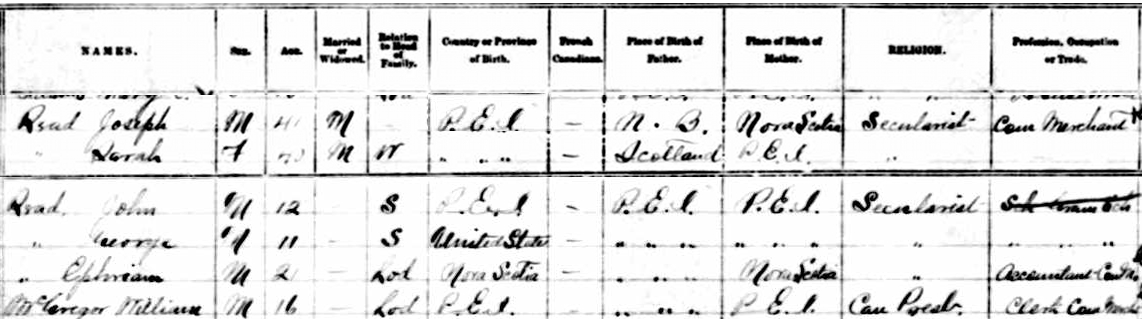 NAMES. Sex. Age. Married or Widowed. Relation to Head of Family. Country or Province of Birth. French Canadians. Place of Birth of Father. Place of Birth of Mother. RELIGION. Profession, Occupation or Trade.
Read Joseph M 41 M - P.E.I. - N. B. Nova Scotia Secularist Com Merchant
" Sarah F M W " " " - Scotland P.E.I. "
Read John M 12 S P.E.I. - P.E.I. P.E.I. Secularist
" George M 11 - S United States - " " " " " " " " " "
" Ephriam M 21 - Lod Nova Scotia - " " " Nova Scotia " Accountant Com
McGregor William M 16 - Lod P.E.I. - " " " P.E.I. Can Presb. Clerk Com